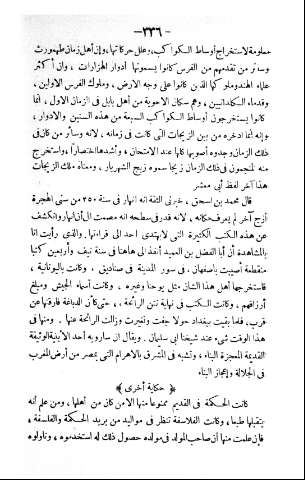 — ٣٣٦ —
معلومة لاستخراج أوساط الكواكب، وعلل حركاتها، وإن أهل زمان طهمورث
وسائر من تقدمهم من الفرس كانوا يسمونها أدوار الهزارات، وان أكثر
علماء الهند وملوكها الذين كانوا على وجه الارض، وملوك الفرس الاولين،
وقدماء الكلدانيين، وهم سكان الاحوية من أهل بابل فى الزمان الاول، انما
كانوا يستخرجون أوساط الكواكب السبعة من هذه السنين والادوار،
وإنه انما ادخره من بين الزيجات التى كانت فى زمانه، لانه وسائر من كان فى
ذلك الزمان وجدوه أصوبها كلها عند الامتحان، وأشدها اختصاراً، واستخرج
منه المنجمون فى ذلك الزمان زيجا سموه زيج الشهريار، ومعناه ملك الزيجات
هذا آخر لفظ أبى معشر
قال محمد بن اسحق، خبرنى الثقة انه انهار فى سنة ٣٥٠ من سنى الهجرة
أزج آخر لم يعرف مكانه، لانه قدر فى سطحه انه مصمت الى أن انهار وانكشف
عن هذه الكتب الكثيرة التى لا يهتدى احد الى قراءتها. والذى رأيت انا
بالمشاهدة أن أبا الفضل بن العميد أنفذ الى هاهنا فى سنة نيف وأربعين كتبا
منقطعة أصيبت باصفهان. فى سور المدينة فى صناديق. وكانت باليونانية،
فاستخرجها أهل هذا الشان مثل يوحنا وغيره، وكانت أسماء الجيش ومبلغ
أرزاقهم، وكانت الكتب فى نهاية نتن الرائحة، حتى كأن الدباغة فارقتها عن
قرب، فلما بقيت ببغداد حولا جفت وتغيرت وزالت الرائحة عنها. ومنها فى
هذا الوقت شىء عند شيخنا ابى سليمان. ويقال ان سارويه أحد الأبنية الوثيقة
القديمة المعجزة البناء، وتشبه فى المشرق بالاهرام التى بمصر من أرض المغرب
فى الجلالة واعجاز البناء
﴿ حكاية أخرى ﴾
كانت الحكمة فى القديم ممنوعا منها الا من كان من أهلها، ومن علم أنه
يتقبلها طبعا، وكانت الفلاسفة تنظر فى مواليد من يريد الحكمة والفلسفة،
فإن علمت منها أن صاحب المولد فى مولده حصول ذلك له استخدموه، وناولوه